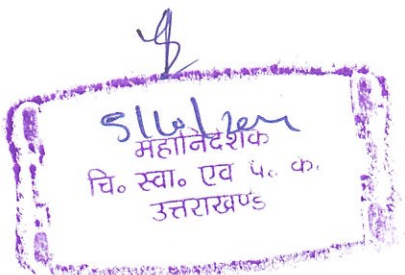 महानिदेशक
चि० स्वा० एवं प० क०
उत्तराखण्ड